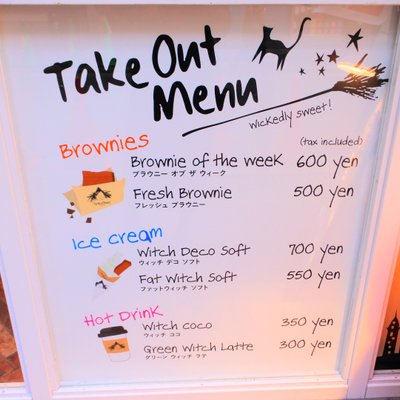 Take Out
Menu
wickedly sweet!
Brownies
(tax included)
Brownie of the week 600 yen
ブラウニー オブ ザ ウィーク
Fresh Brownie 500 yen
フレッシュ ブラウニー
Ice cream
Witch Deco Soft 700 yen
ウィッチ デコ ソフト
Fat Witch Soft 550 yen
ファットウィッチ ソフト
Hot Drink
Witch coco 350 yen
ウィッチ ココ
Green Witch Latte 300 yen
グリーン ウィッチ ラテ